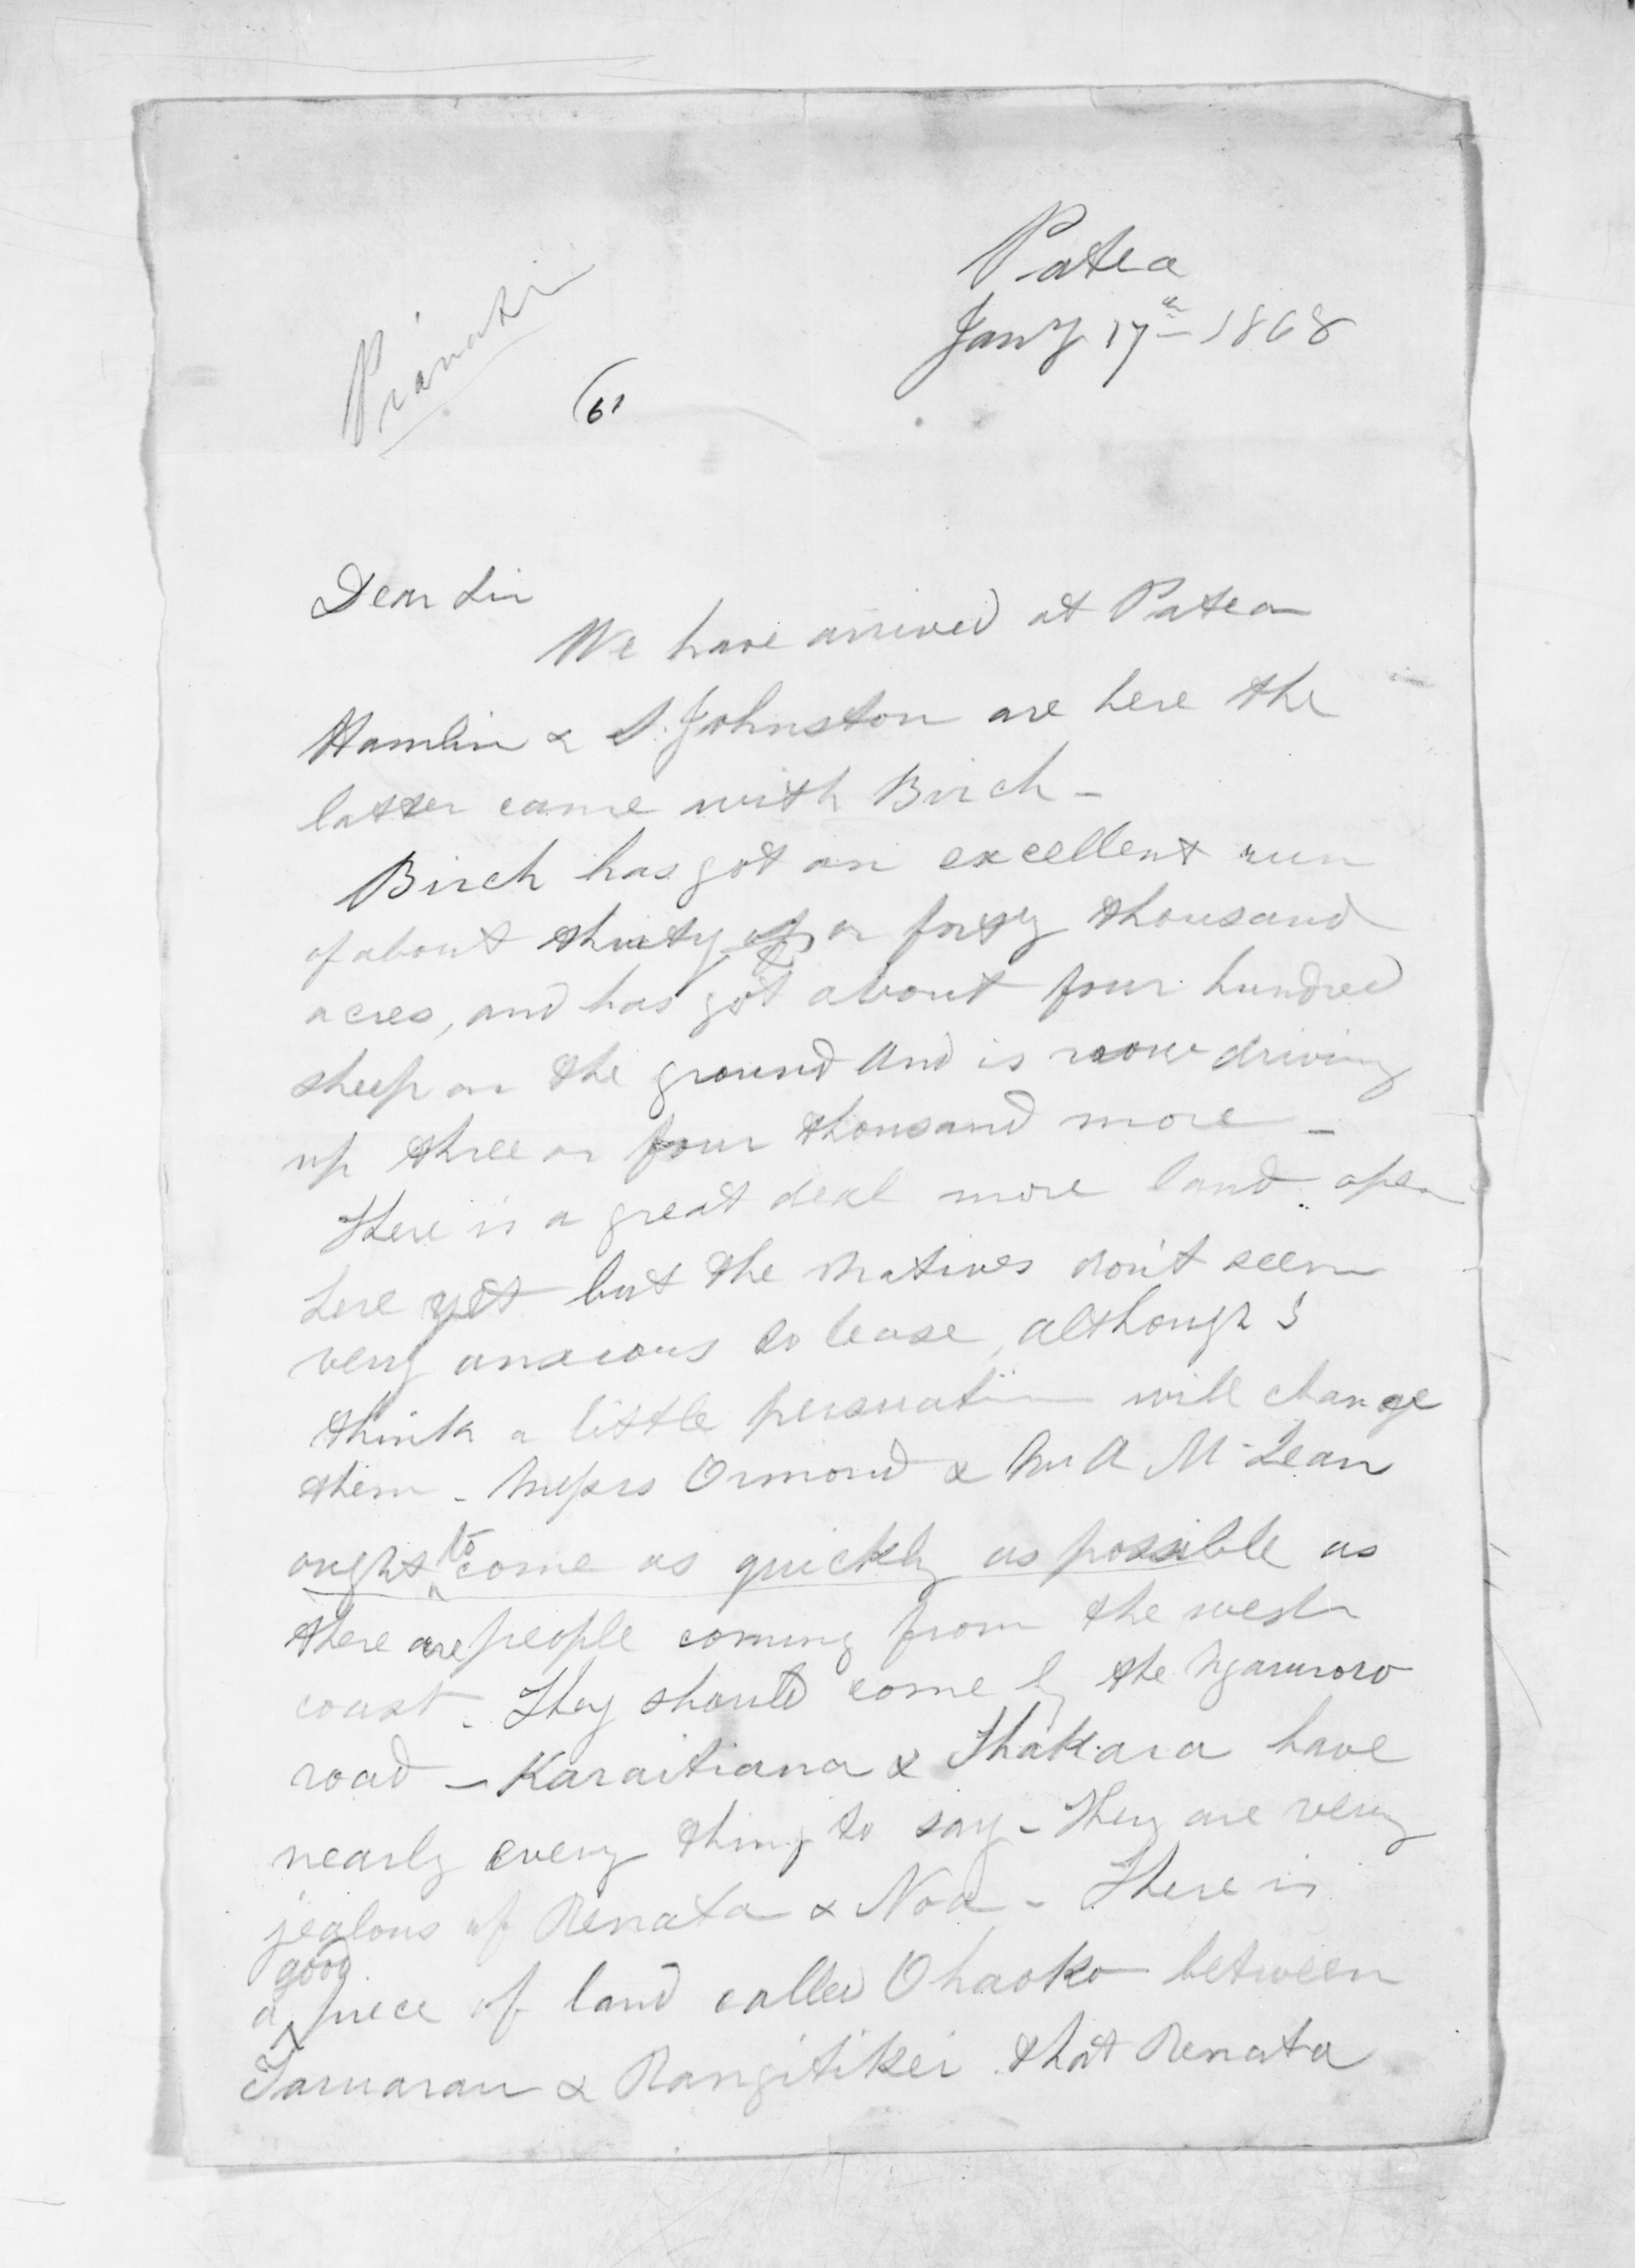 Patea
Jany 17th 1868
Private
Dear Sir
We have arrived at Patea
Hamlin & S. Johnston are here the
latter came with Birch -
Birch has got an excellent run
of about thirty or forty thousand
acres, and has got about four hundred
sheep on the ground and is now driving
up three or four thousand more -
There is a great deal more land open
here yet but the natives don't seem
very anxious to lease, although I
think a little persuation will change
them - Messrs Ormond & Mr A McLean
ought to come as quickly as possible as
there are people coming from the west
coast. They should come by the Ngaruroro
road - Karaitiana & Ihakara have
nearly every thing to say - They are very
jealous of Renata & Noa - There is
a good piece of land called Ohaoko between
Taruarau & Rangitikei that Renata